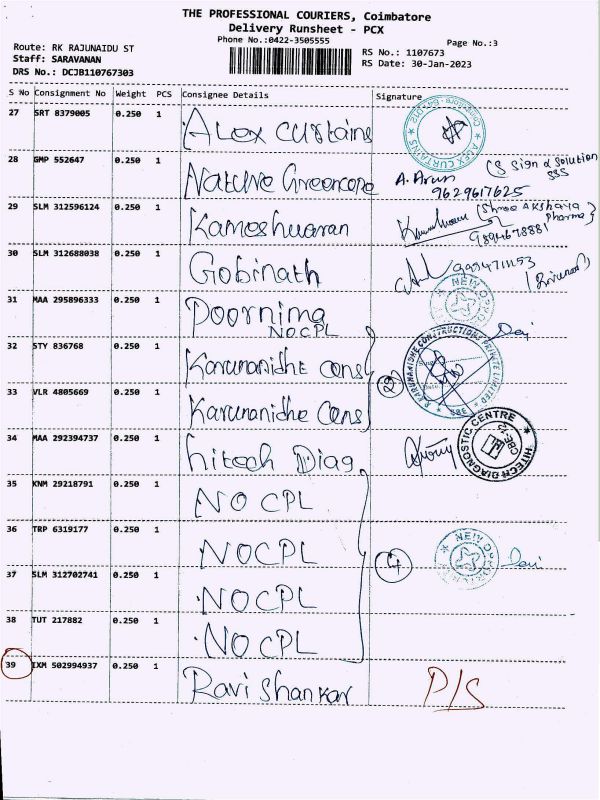 THE PROFESSIONAL COURIERS, Coimbatore
Delivery Runsheet - PCX
Phone No.:0422-3505555
Page No.:3
Route: RK RAJUNAIDU ST
Staff: SARAVANAN
DRS No.: DCJB110767303
RS No.: 1107673
RS Date: 30-Jan-2023
S No Consignment No Weight PCS Consignee Details Signature
27 SRT 8379005 0.250 1 Alex curtains
ALEX CURTAINS
28 GMP 552647 0.250 1 Nature Greencone A. Arun
Sign & Solution
SSS
9629617625
29 SLM 312596124 0.250 1 Kameshwaran
(Shree Akshaya
Pharma)
9894678881
30 SLM 312688038 0.250 1 Gobinath
31 MAA 295896333 0.250 1 Poornima
NOCPL
32 STY 836768 0.250 1 Karunanidhe cons
KARUNAKIDHE CONSTRUCTIONS PRIVATE LIMITED
33 VLR 4805669 0.250 1 Karunanidhe Cons 2
34 MAA 292394737 0.250 1 hitech Diag
HITECH DIAGNOSTIC CENTRE
CBE-12
35 KNM 29218791 0.250 1 NO CPL
36 TRP 6319177 0.250 1 NOCPL 4
37 SLM 312702741 0.250 1 NOCPL
38 TUT 217882 0.250 1 NOCPL
39 IXM 502994937 0.250 1 Ravi Shankar P/S